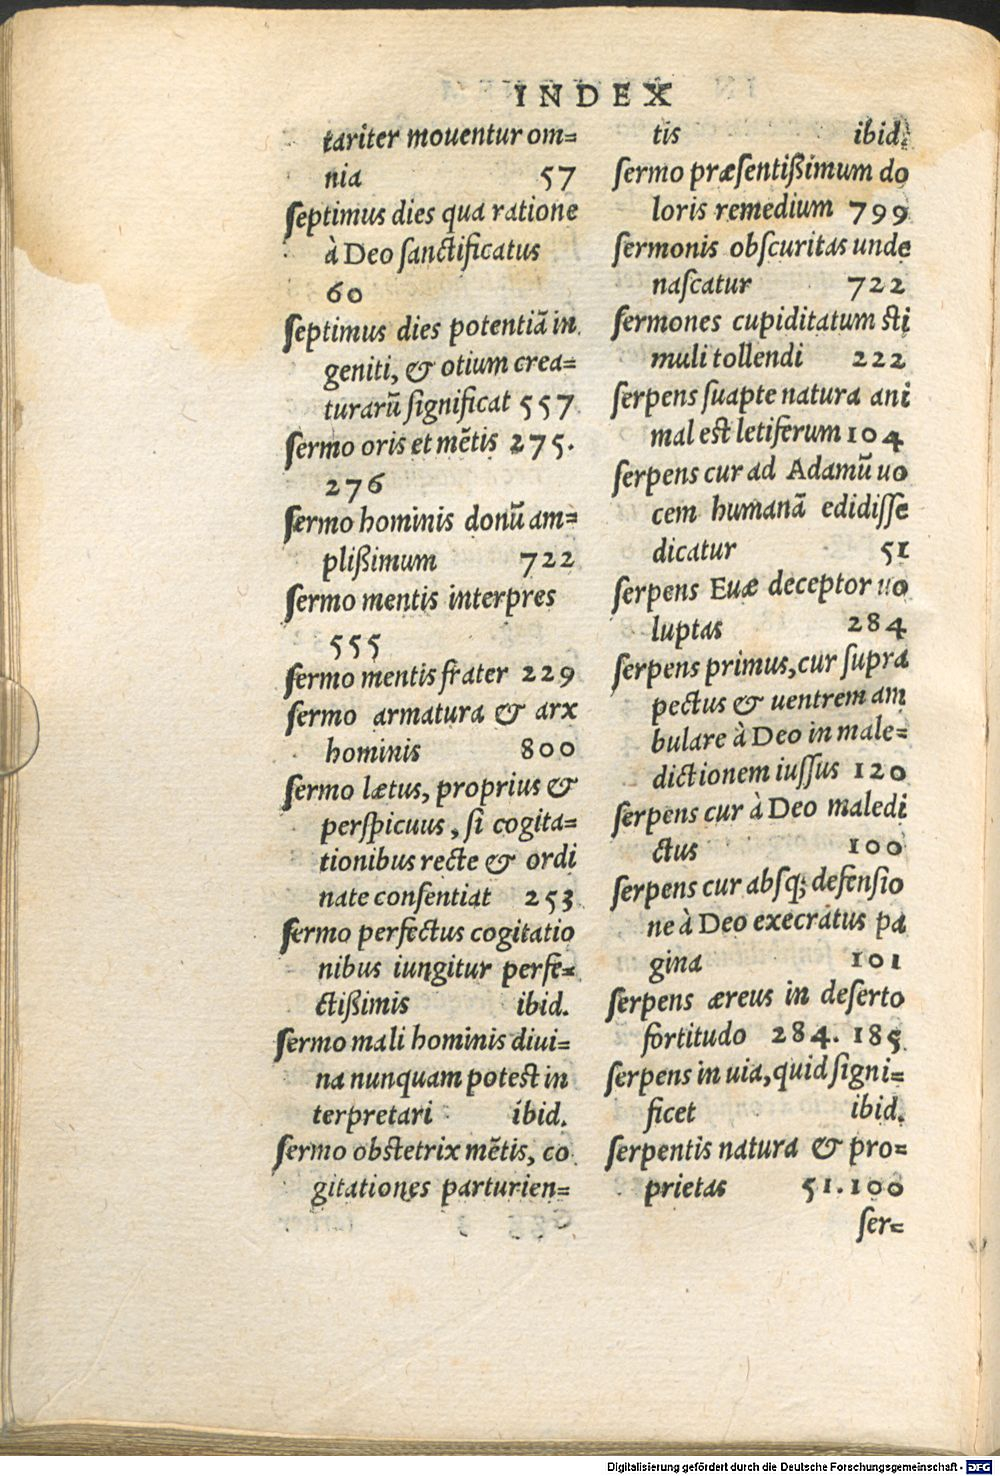 INDEX
tariter mouentur om=
nia 57
ſeptimus dies qua ratione
à Deo ſanctificatus
60
ſeptimus dies potentiã in
geniti, & otium crea=
turarũ ſignificat 557
ſermo oris et mẽtis 275.
276
ſermo hominis donũ am=
plißimum 722
ſermo mentis interpres
555
ſermo mentis frater 229
ſermo armatura & arx
hominis 800
ſermo lætus, proprius &
perſpicuus, ſi cogita=
tionibus recte & ordi
nate conſentiat 253
ſermo perfectus cogitatio
nibus iungitur perfe=
ctißimis ibid.
ſermo mali hominis diui=
na nunquam poteſt in
terpretari ibid.
ſermo obſtetrix mẽtis, co
gitationes parturien=
tis ibid.
ſermo præſentißimum do
loris remedium 799
ſermonis obſcuritas unde
naſcatur 722
ſermones cupiditatum ſti
muli tollendi 222
ſerpens ſuapte natura ani
mal eſt letiferum 104
ſerpens cur ad Adamũ uo
cem humanã edidiſſe
dicatur 51
ſerpens Euæ deceptor uo
luptas 284
ſerpens primus, cur ſupra
pectus & uentrem am
bulare à Deo in male=
dictionem iuſſus 120
ſerpens cur à Deo maledi
ctus 100
ſerpens cur abſq; defenſio
ne à Deo execratus pa
gina 101
ſerpens æreus in deſerto
fortitudo 284. 185
ſerpens in uia, quid ſigni=
ficet ibid.
ſerpentis natura & pro=
prietas 51.100
ſer=
Digitalisierung gefördert durch die Deutsche Forschungsgemeinschaft - DFG